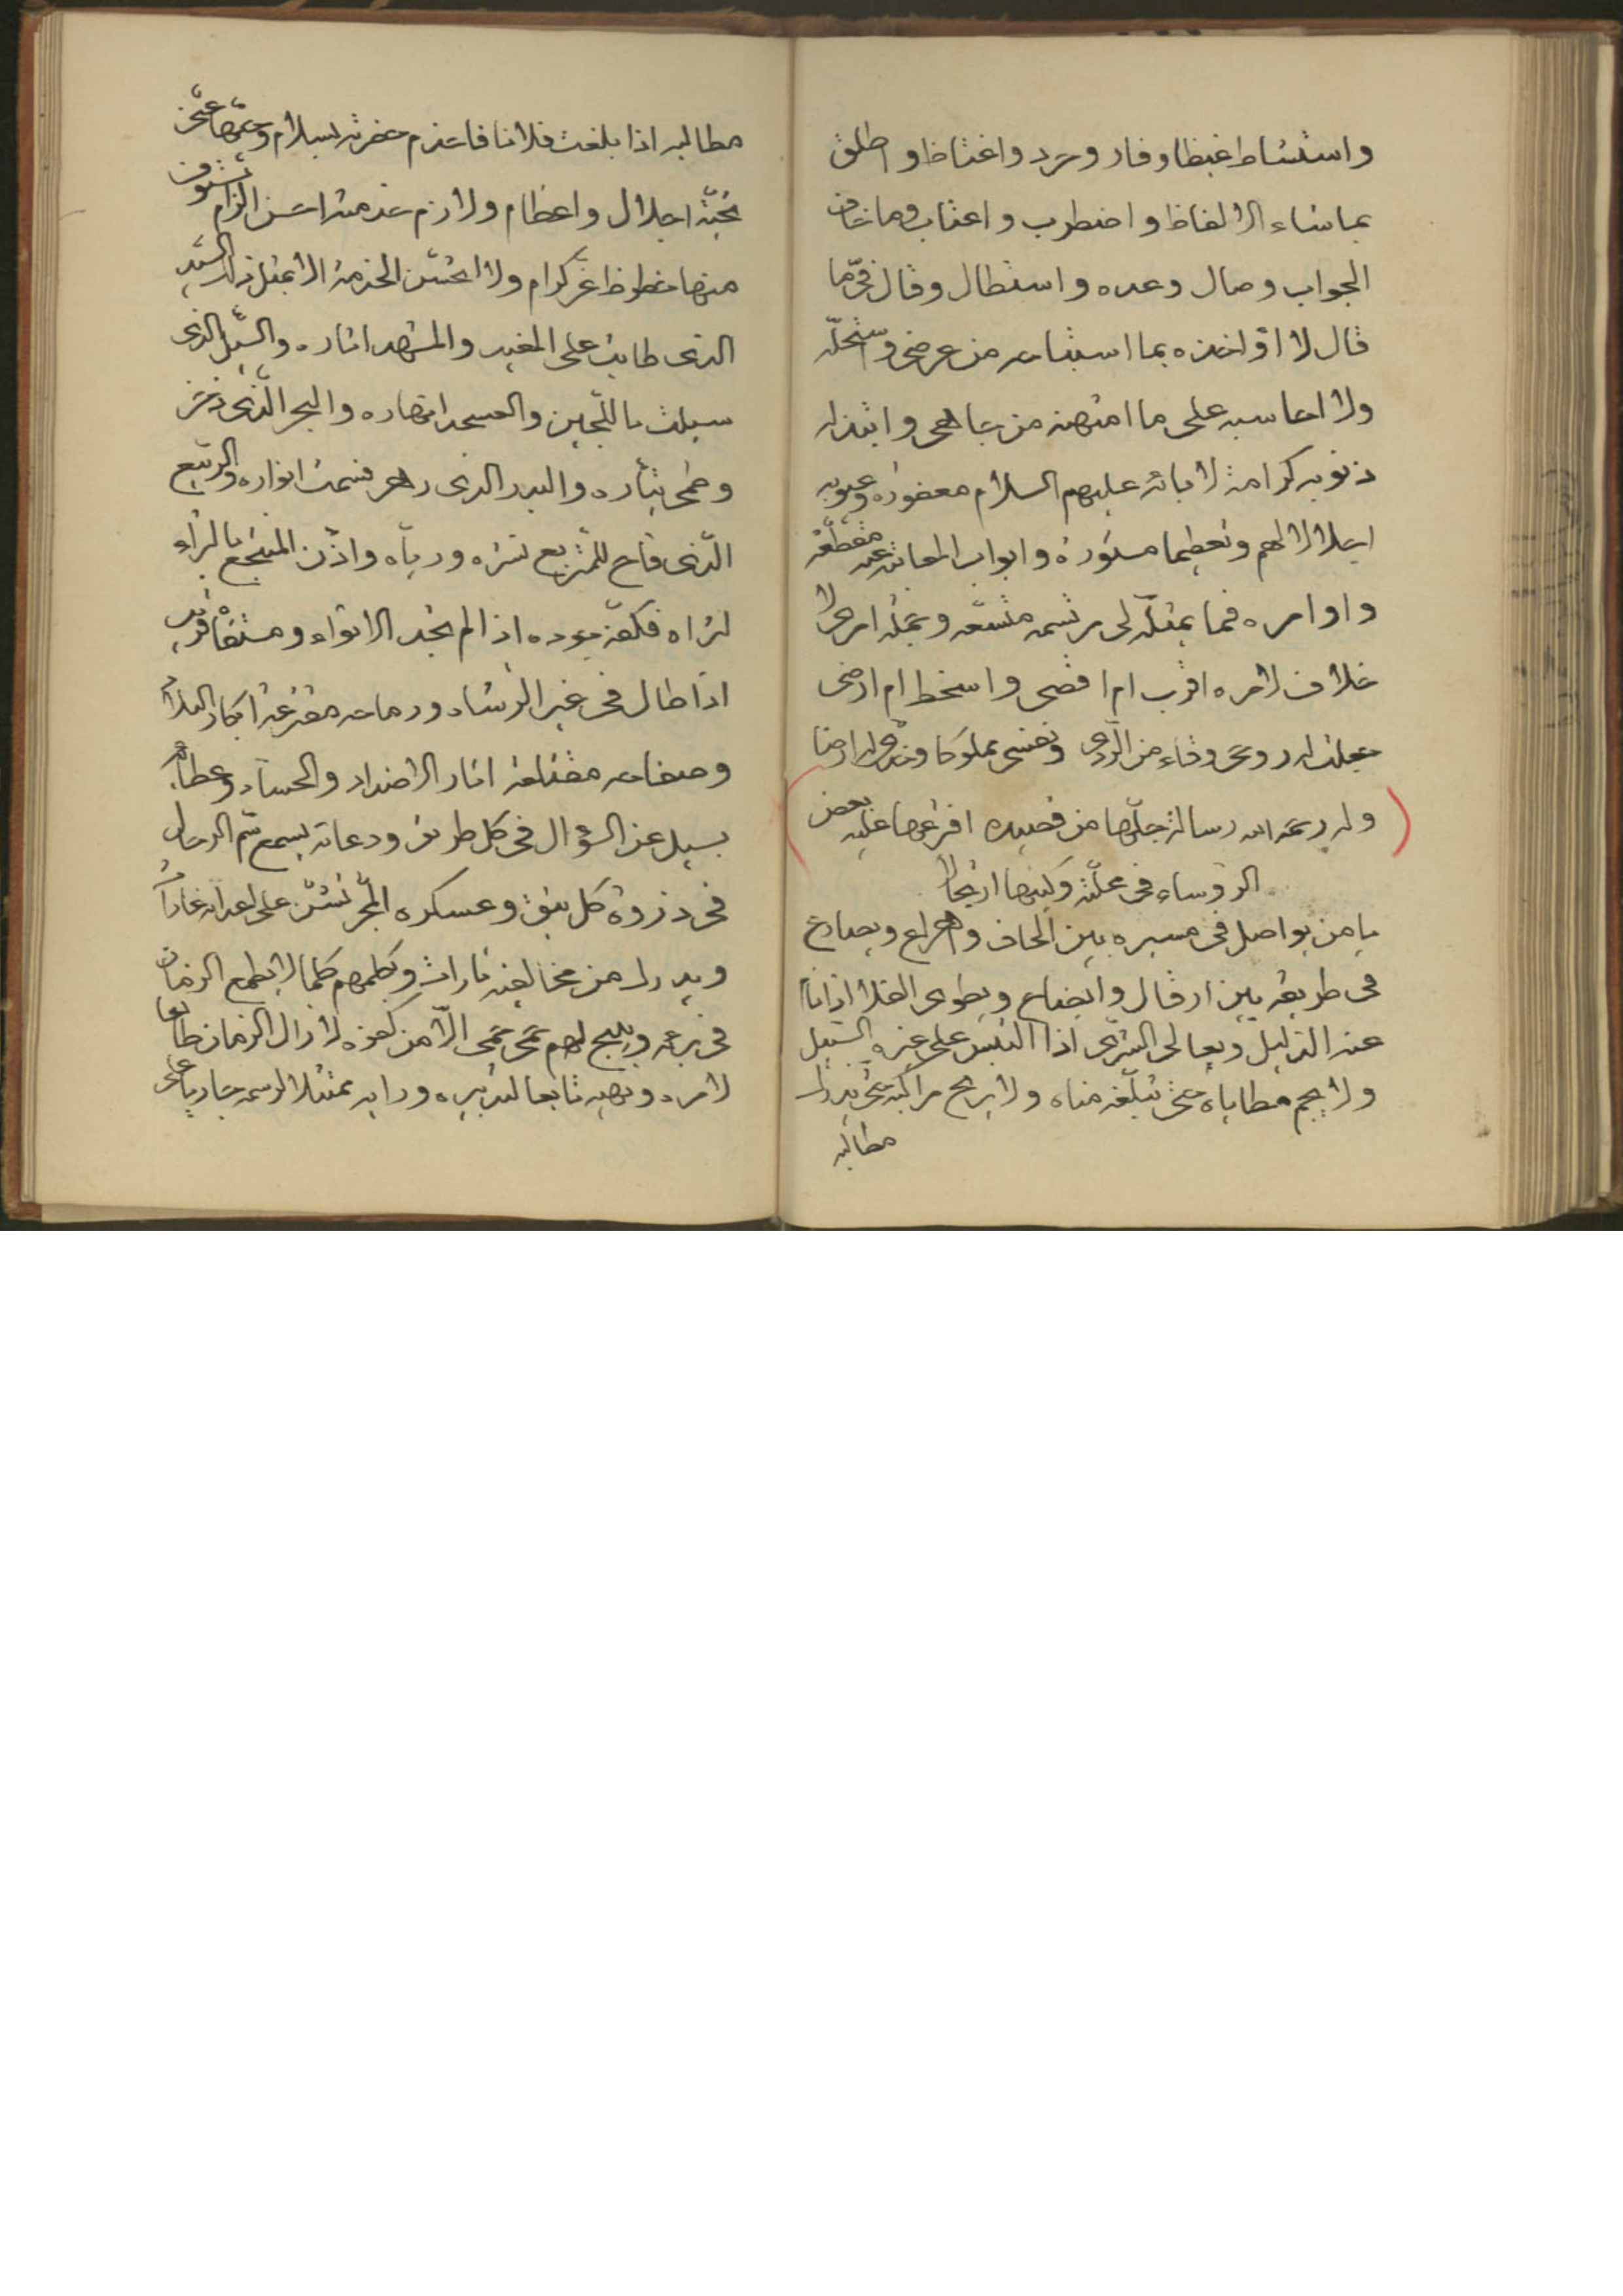 واستشاط غيظا وفار وحرد واغتاظ واطلق
بما شاء الالفاظ واضطرب واعتاب وما خاف
الجواب وصال وعده واستطال وقال فىّ ما
قال لا اؤاخذه بما استباحه من عرضى واستحلّه
ولا احاسبه على ما امتهنه من جاهى وابتذله
ذنوبه كرامة لآبائه عليهم السلام مغفورة وعيوبه
اجلالا لهم وتعظيما مستورة وابواب المعاتبة عنه مقطّعة
واوامره فما يمثله لى مرتسمة متّسعة ويمثله امر هوا
خلاف لامره اقرب ام اقصى واسخط ام ارضى
جعلت له روحى وقاء من الرّدى ونفسى مملوكا وخدّى له ارضا
وله رحمه الله رسالة جلّها من قصيده اقترحها عليه بعض
الرؤساء فى محلّته وكتبها ارتجالا
يا من يواصل فى مسيره بين الحاف واهراع ويصادع
فى طريقه بين ارقال وايضاع ويطوى الفلا اذا نا
عنه الدليل ويعالى السّرى اذا التبس على غيره السّبيل
ولا يجم مطاياه حتى تبلّغه مناه ولا يريح مراكبه حتى يدرك
مطالبه
مطالبه اذا بلغت فلانا فاخدم حضرته بسلام وخصّها عنّى
بتحيّة اجلال واعظام ولازم خدمته احسن الزام
منها حظوظ غرّ كرام ولا تحسن الخدمة الا بمثل ذلك السّيّد
الذى طابت على المغيب والمشهد اثاره والسّيل الذى
سيلت باللّجين والعسجد انهاره والبحر الّذى زخر
وطمى تيّاره والبدر الذى زهر فسمت انواره والرّبيع
الّذى فاح للمتربع نشره وريّاه واذّن المنتجع بالثراء
ثراه فكفّه بجوده اذا لم تجد الانواء ومستضافريد
اذا طال فى غير الرشاد ورماحه مفترعة ابكار البلاد
وصفاحه مقتلعة اثار الاضداد والحساد وعطاؤه
يسيل عن السؤال فى كل طريق ودعاته يسمع شم الرجال
فى ذروة كل نيق وعسكره المجر تشنّ على اعدائه غارا
ويدرك من مخالفيه ثارات ويكلمهم كلما لا يطمع الزمان
فى برئه ويبيح لهم حمى حمى الّا من كفره لا زال الزمان طائعا
لامره ونهيه تابعا لتدبيره ورايه ممتثلا لرسمه جاريا على